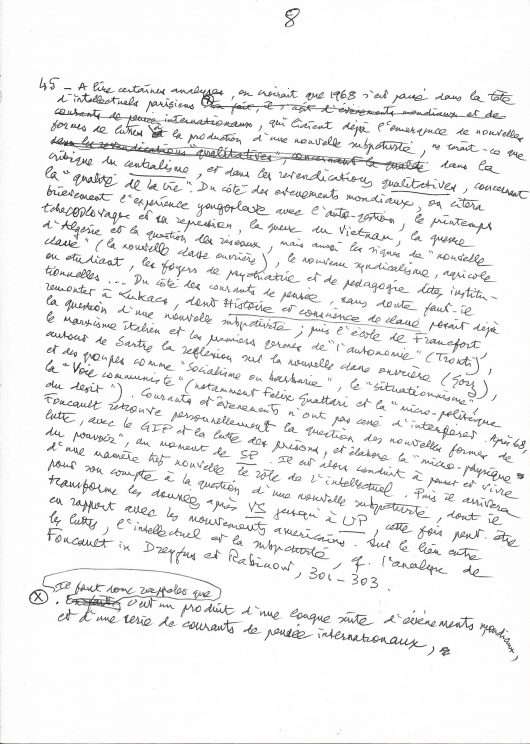 8
45 - A lire certaines analyses, on croirait que 1968 s'est passé dans la tête
d'intellectuels parisiens ⊗ En fait, il s'agit d'événements mondiaux et de
courants de pensée internationaux, qui liaient déjà l'émergence de nouvelles
formes de luttes à la production d'une nouvelle subjectivité, ne serait-ce que
dans les revendications "qualitatives", concernant la qualité dans la
critique du centralisme, et dans les revendications qualitatives, concernant
la "qualité de la vie". Du côté des événements mondiaux, on citera
brièvement l'expérience yougoslave avec l'auto-gestion, le printemps
tchécoslovaque et sa répression, la guerre du Vietnam, la guerre
d'Algérie et la question des réseaux, mais aussi les signes de "nouvelle
classe" (la nouvelle classe ouvrière), le nouveau syndicalisme, agricole
ou étudiant, les foyers de psychiatrie et de pédagogie dites institu-
tionnelles ... Du côté des courants de pensée, sans doute faut-il
remonter à Lukacs, dont Histoire et conscience de classe posait déjà
la question d'une nouvelle subjectivité ; puis l'école de Francfort,
le marxisme italien et les premiers germes de "l'autonomie" (Tronti),
autour de Sartre la réflexion sur la nouvelle classe ouvrière (Gorz),
et des groupes comme "Socialisme ou barbarie", le "Situationnisme",
la "Voie communiste" (notamment Felix Guattari et la "micro-politique
du désir"). Courants et événements n'ont pas cessé d'interférer. Après 68,
Foucault retrouve personnellement la question des nouvelles formes de
lutte, avec le GIP et la lutte des prisons, et élabore la "micro-physique
du pouvoir", au moment de SP. Il est alors conduit à penser et vivre
d'une manière très nouvelle le rôle de l'intellectuel. Puis il arrivera
pour son compte à la question d'une nouvelle subjectivité, dont il
transforme les données après VS jusqu'à UP, cette fois peut-être
en rapport avec les mouvements américains. Sur le lien entre
les luttes, l'intellectuel et la subjectivité, cf. l'analyse de
Foucault in Dreyfus et Rabinow, 301-303.
Il faut donc rappeler que
⊗ . c'est un produit d'une longue suite d'événements mondiaux,
et d'une série de courants de pensée internationaux,